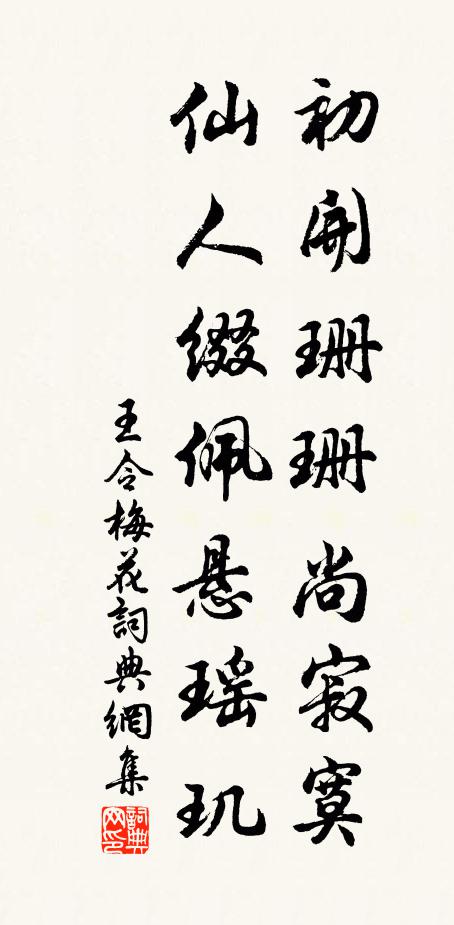 初開珊珊尚寂寞
仙人綴佩悬瑶玑
王令梅花詞典網集
詞典网印